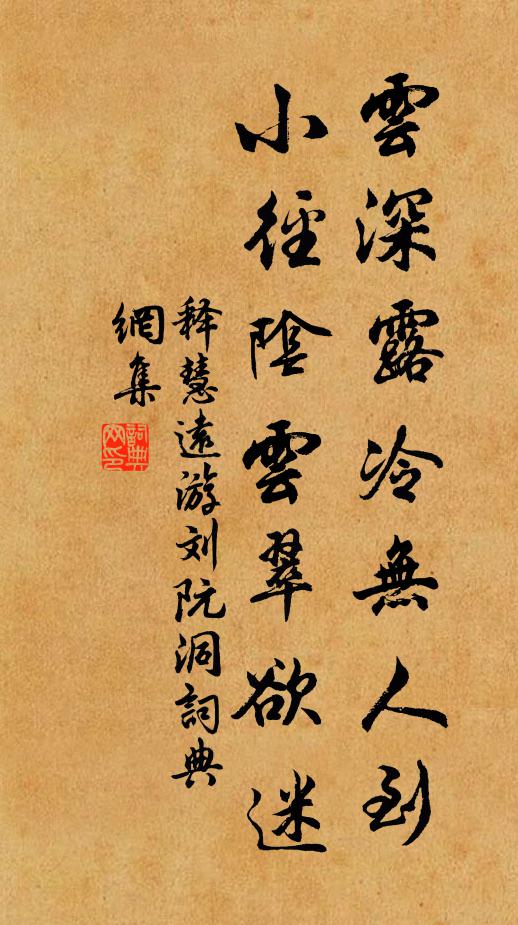 雲深露冷無人到
小徑陰雲翠欲迷
释慧遠游刘阮洞詞典
網集
詞典
网印